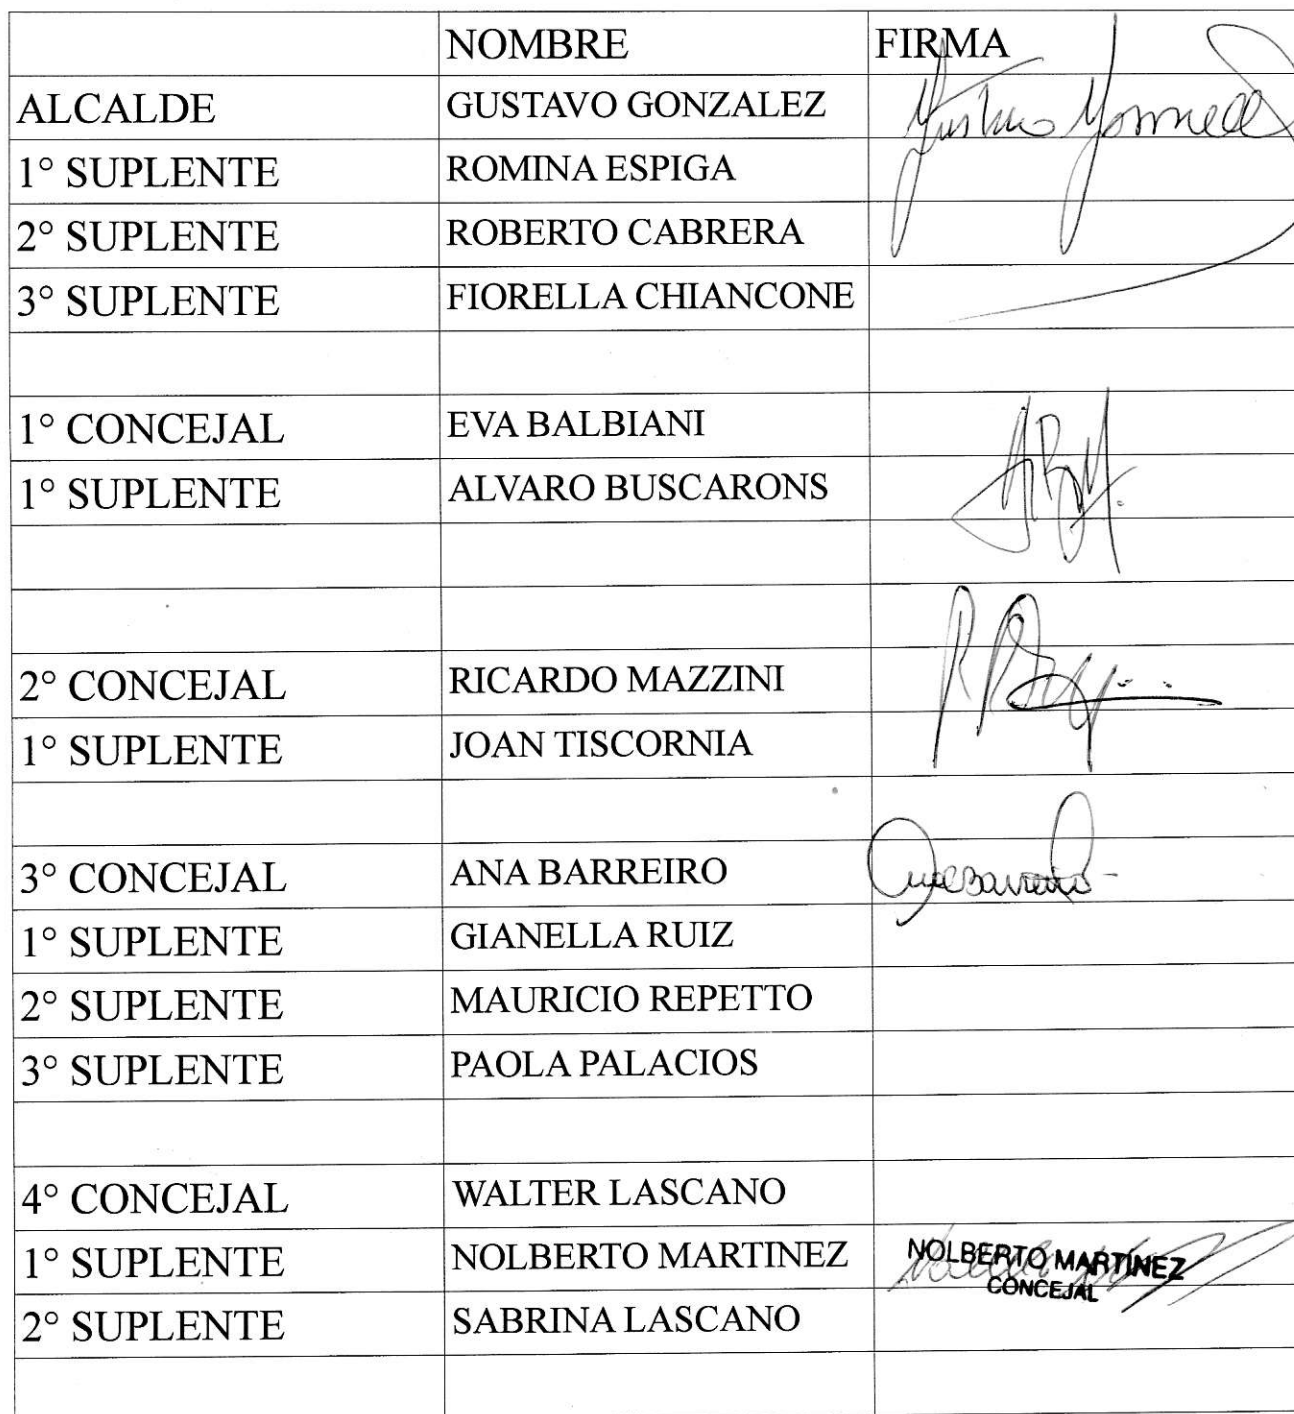 NOMBRE FIRMA
ALCALDE GUSTAVO GONZALEZ Gustavo Gonzalez
1° SUPLENTE ROMINA ESPIGA
2° SUPLENTE ROBERTO CABRERA
3° SUPLENTE FIORELLA CHIANCONE
1° CONCEJAL EVA BALBIANI
1° SUPLENTE ALVARO BUSCARONS
2° CONCEJAL RICARDO MAZZINI
1° SUPLENTE JOAN TISCORNIA
3° CONCEJAL ANA BARREIRO Ana Barreiro
1° SUPLENTE GIANELLA RUIZ
2° SUPLENTE MAURICIO REPETTO
3° SUPLENTE PAOLA PALACIOS
4° CONCEJAL WALTER LASCANO
1° SUPLENTE NOLBERTO MARTINEZ NOLBERTO MARTÍNEZ
CONCEJAL
2° SUPLENTE SABRINA LASCANO